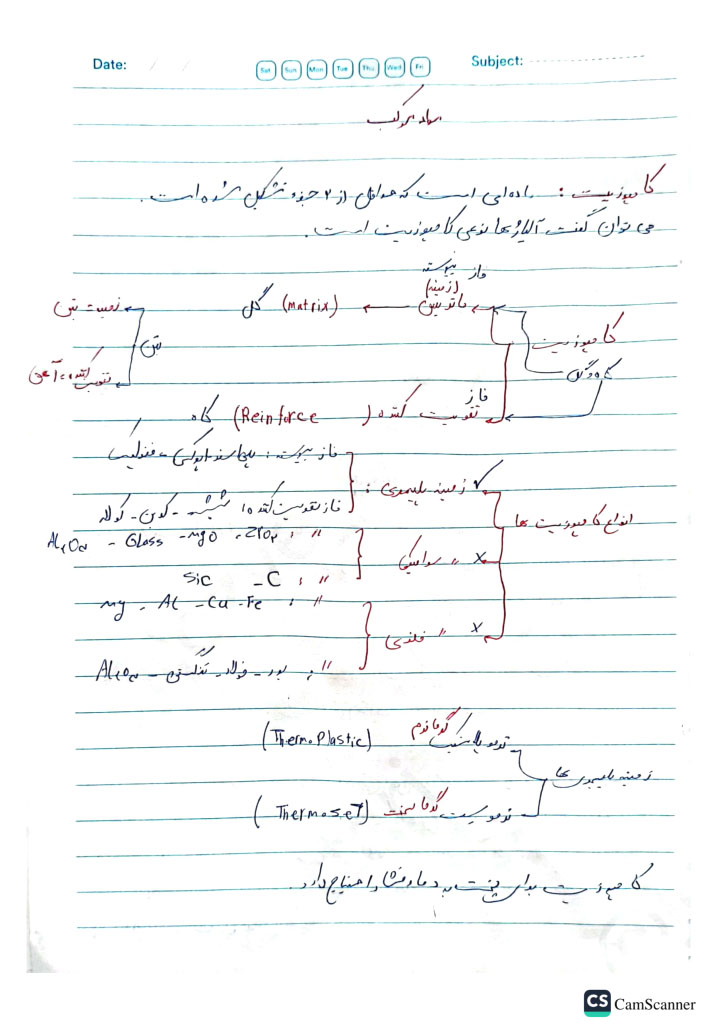 Date: / /
Sat Sun Mon Tue Thu Wed Fri
Subject:
مواد مرکب
کامپوزیت : ماده‌ای است که حداقل از ۲ جزء تشکیل شده است.
می توان گفت آلیاژها نوعی کامپوزیت است.
فاز پیوسته
(زمینه)
ماتریس (matrix) گل
کامپوزیت
کاه و گل
فاز
تقویت کننده (Reinforce) کاه
بتن
زمینه بتن
تقویت کننده آهن
انواع کامپوزیت ها
زمینه پلیمری :
فاز پیوسته : پلی استر اپوکسی - فنولیک
فاز تقویت کننده : شیشه - کربن - کولار
〃 سرامیکی
〃 : Al₂O₃ - Glass - MgO - ZrO₂
〃 : SiC - C
〃 فلزی
〃 : Mg - Al - Cu - Fe
〃 : بور - فولاد - تنگستن - Al₂O₃
زمینه پلیمری ها
ترموپلاستیک گرمانرم (ThermoPlastic)
ترموست گرماسخت (ThermoseT)
کامپوزیت برای پخت به دما و فشار احتیاج دارد.
CS CamScanner